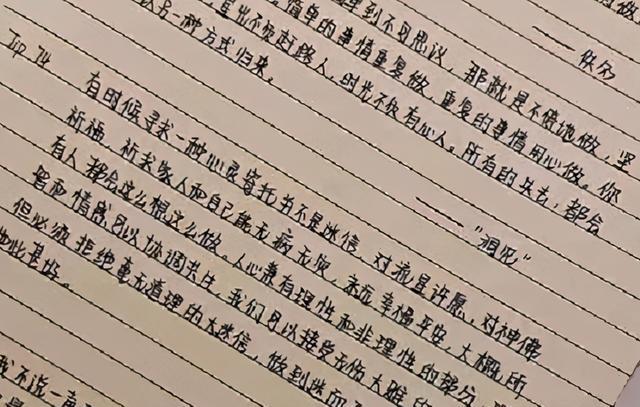 到不可思议，那就是不停地做，坚
简单的事情重复做，重复的事情用心做。你
是出不负赶路人，时光不负有心人。所有的失去，都会
以另一种方式归来。
—— 佚名
Top 74
有时候寻求一种心灵寄托并不是迷信，对流星许愿，对神佛
祈福，祈求家人和自己能无病无灾，永远幸福平安，大概所
有人都会这么想这么做。人心兼有理性和非理性的部分，
智和情感可以协调共生，我们可以接受无伤大雅的
但必须拒绝毫无道理的大迷信，做到迷而
如此甚好。
我不说一